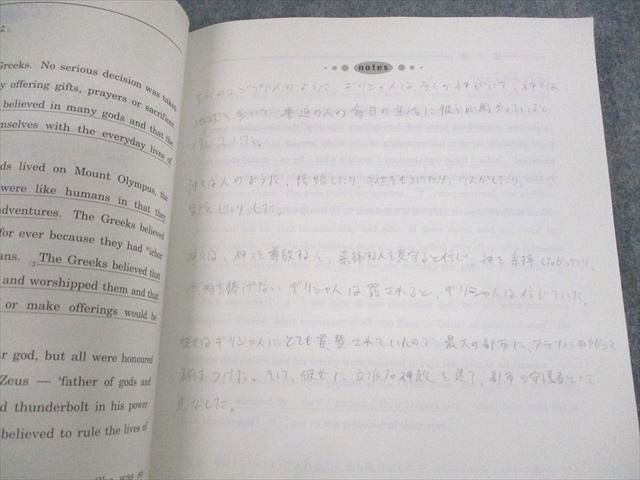 よ。
Greeks. No serious decision was taken
offering gifts, prayers or sacrifices
believed in many gods and that the
mselves with the everyday lives of
ds lived on Mount Olympus, the
were like humans in that they
adventures. The Greeks believed
for ever because they had "ichor
ans. (3) The Greeks believed that
and worshipped them and that
or make offerings would be
r god, but all were honoured
Zeus — 'father of gods and
d thunderbolt in his power.
believed to rule the lives of
She was se
notes
のエジプト人のように、ギリシャ人は多くの神がいて、神々は
普通の人の毎日の生活に
神々は人のように、結婚したり、子供をもうけたり、けんかしたり、
冒険したりした。
神々は、神々を尊敬する人、崇拝する人を見守ると信じ、神を崇拝しなかったり、
供物を捧げないギリシャ人は罰されると、ギリシャ人は信じていた。
彼女はギリシャ人にとても賞賛されていたので、最大の都市に、アテナにちなんで
名前をつけた。そして、彼女に立派な神殿を建て、都市の守護者として
見なした。